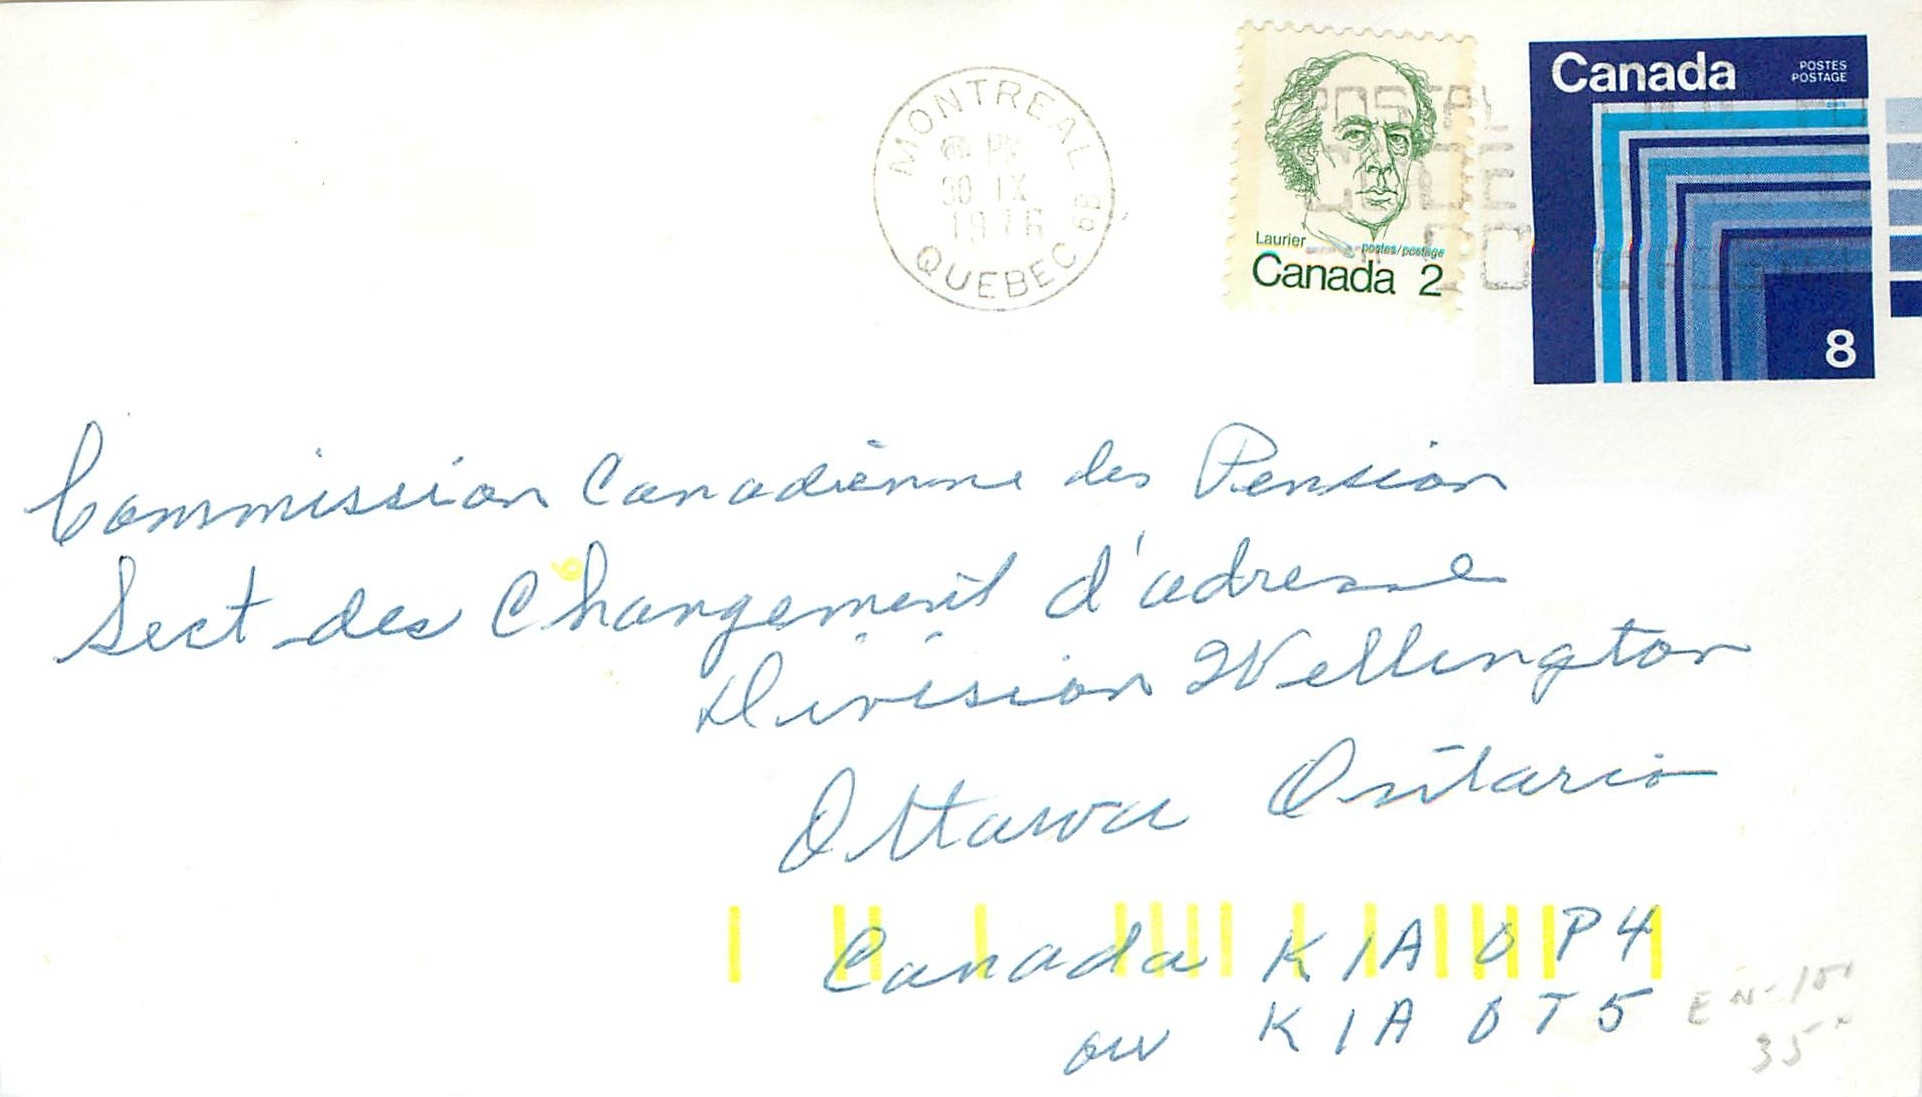 MONTREAL 89
PM
30 IX
1976
QUEBEC
Laurier postes/postage
Canada 2
Canada POSTES
POSTAGE
8
POSTAL
CODE
Commission Canadienne des Pension
Sect des Changement d'adresse
Division Wellington
Ottawa Ontario
Canada K1A 0P4
ou K1A 0T5
35